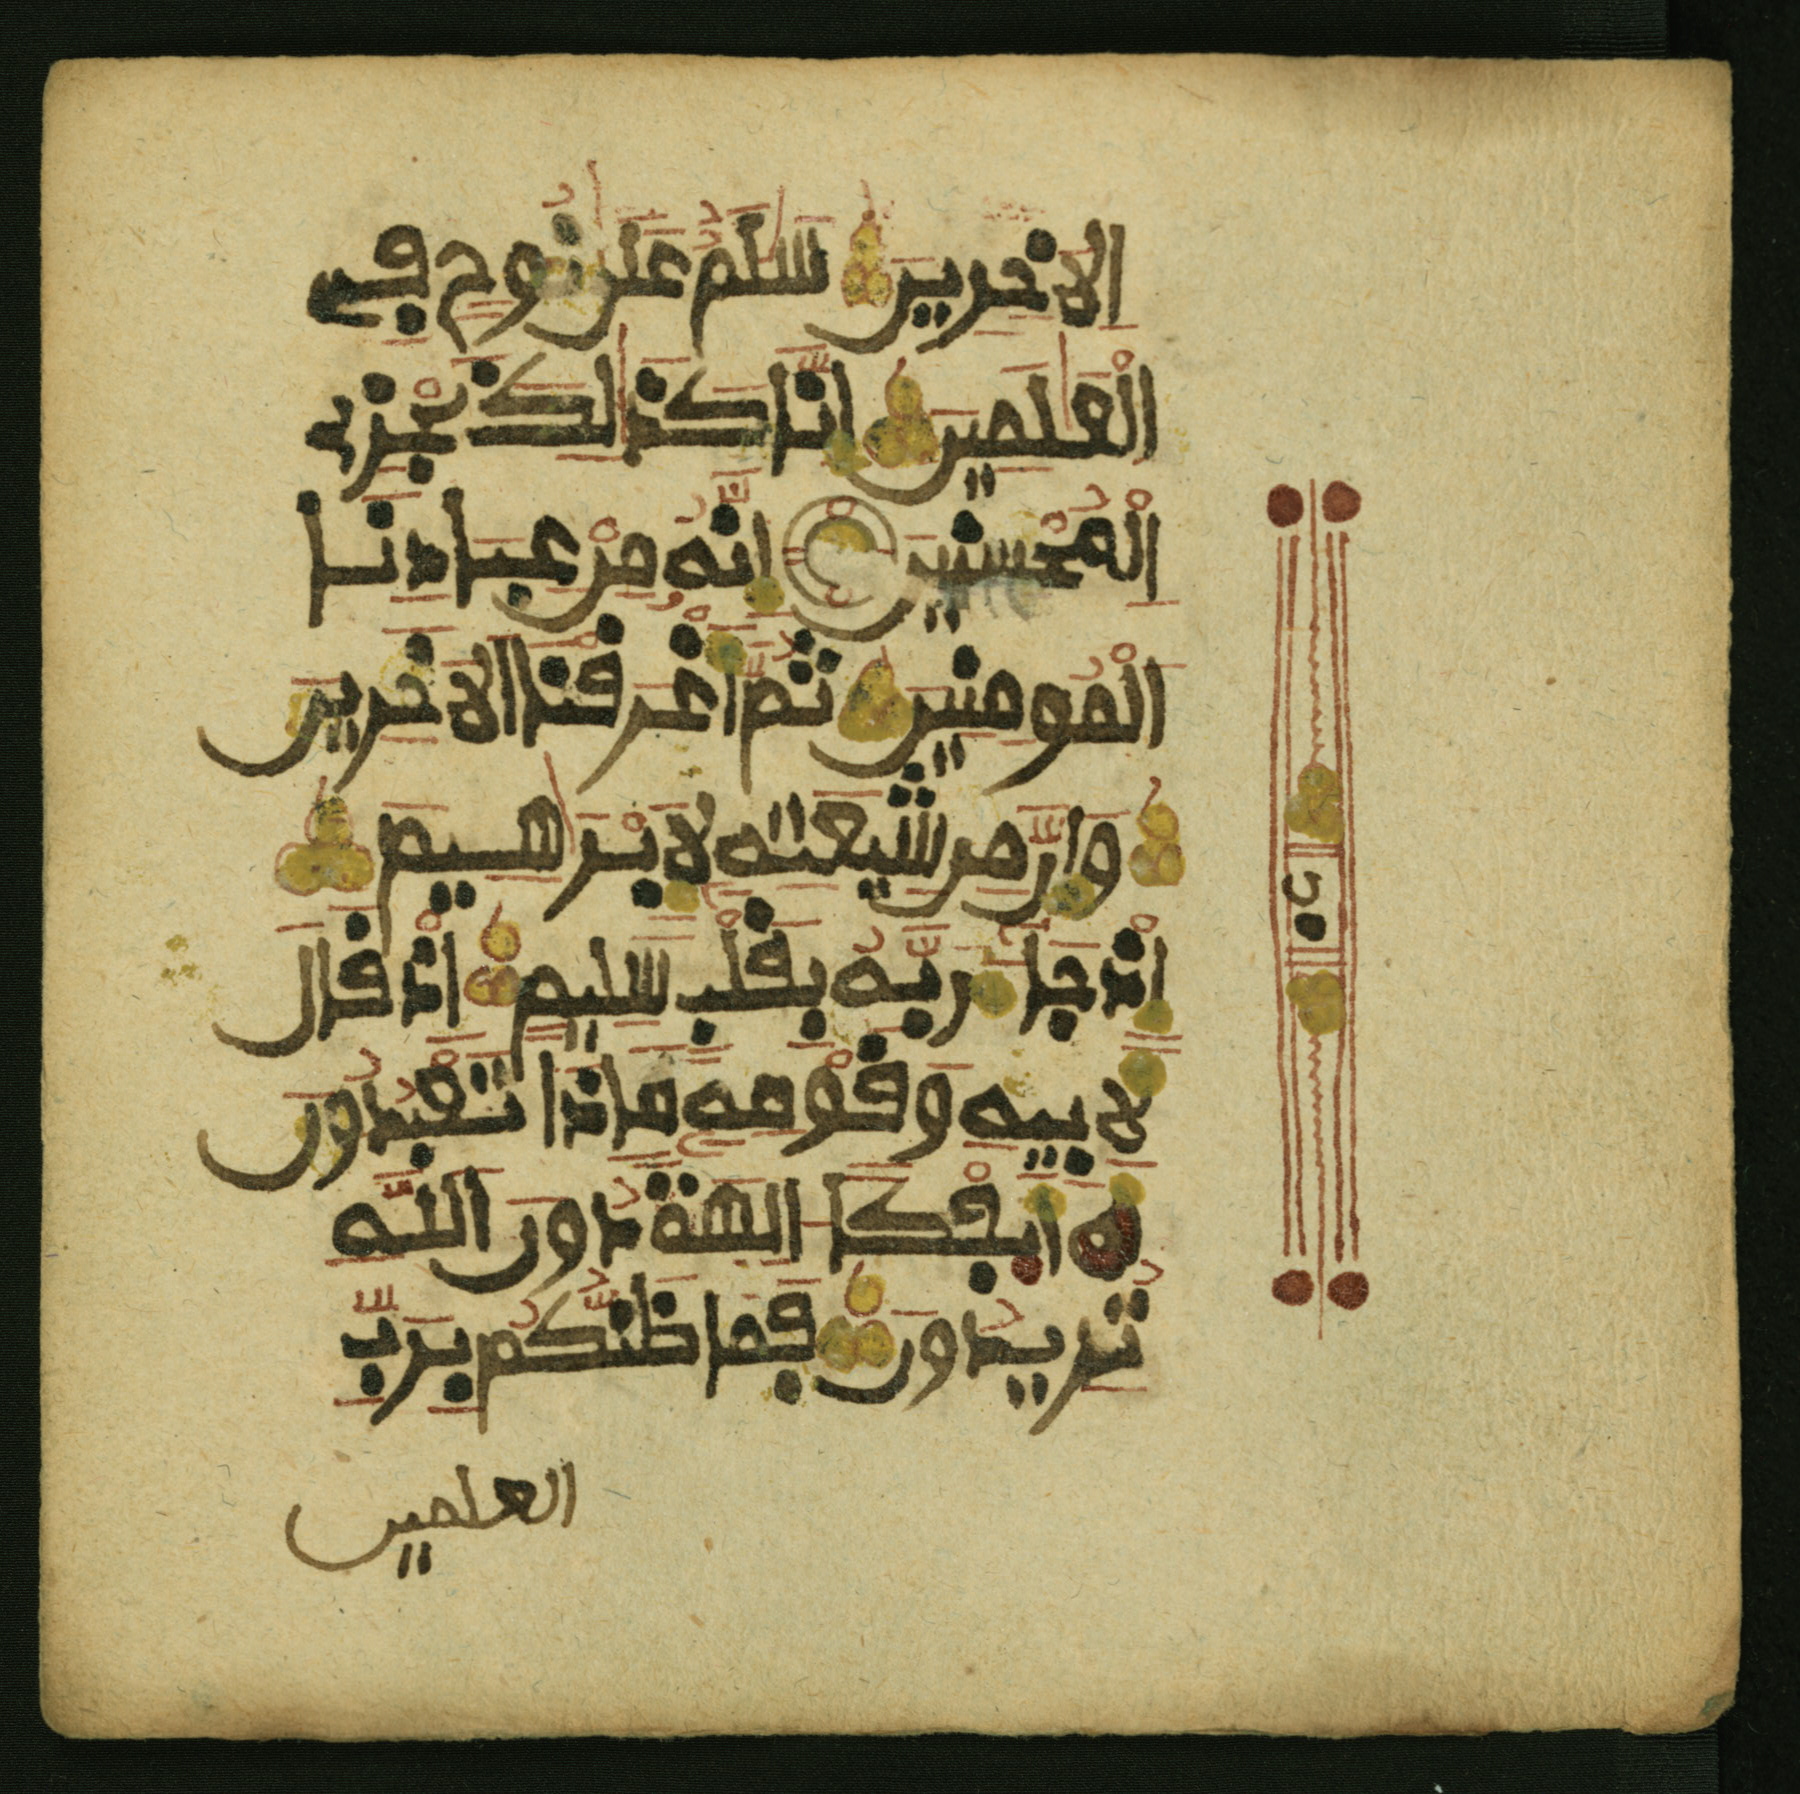 الاخرين سلم على نوح في
العلمين انا كذلك نجزي
المحسنين انه من عبادنا
المومنين ثم اغرقنا الاخرين
وان من شيعته لابرهيم
اذ جا ربه بقلب سليم اذ قال
لابيه وقومه ماذا تعبدون
ايفكا الهة دون الله
تريدون فما ظنكم برب
العلمين